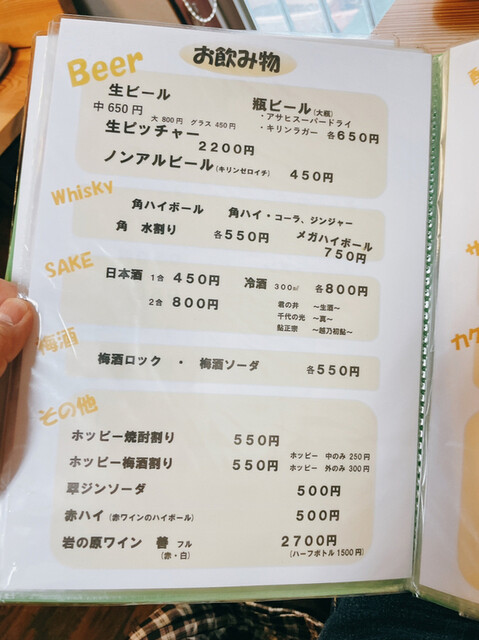 お飲み物
Beer
生ビール
中 650円
大 800円 グラス 450円
瓶ビール(大瓶)
・アサヒスーパードライ
・キリンラガー 各650円
生ピッチャー
2200円
ノンアルビール(キリンゼロイチ) 450円
Whisky
角ハイボール 角ハイ・コーラ、ジンジャー
角 水割り 各550円 メガハイボール
750円
SAKE
日本酒 1合 450円 冷酒 300㎖ 各800円
2合 800円
君の井 〜生酒〜
千代の光 〜真〜
鮎正宗 〜越乃初鮎〜
梅酒
梅酒ロック ・ 梅酒ソーダ 各550円
その他
ホッピー焼酎割り 550円
ホッピー梅酒割り 550円
ホッピー 中のみ 250円
ホッピー 外のみ 300円
翠ジンソーダ 500円
赤ハイ(赤ワインのハイボール) 500円
岩の原ワイン 善 フル 2700円
(赤・白) (ハーフボトル1500円)
サ
カク